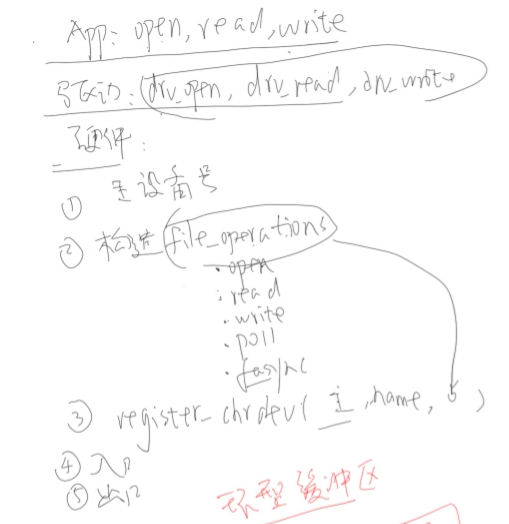 App: open, read, write
驱动: drv_open, drv_read, drv_write
硬件:
① 主设备号
② 构造 file_operations
.open
.read
.write
.poll
.fasync
③ register_chrdev( 主, name, )
④ 入口
⑤ 出口
环型缓冲区